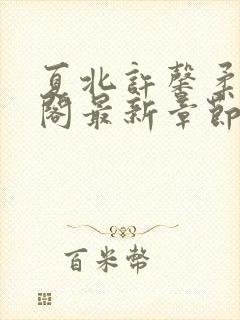 夏北許馨柔
閣最新章節
百米幣